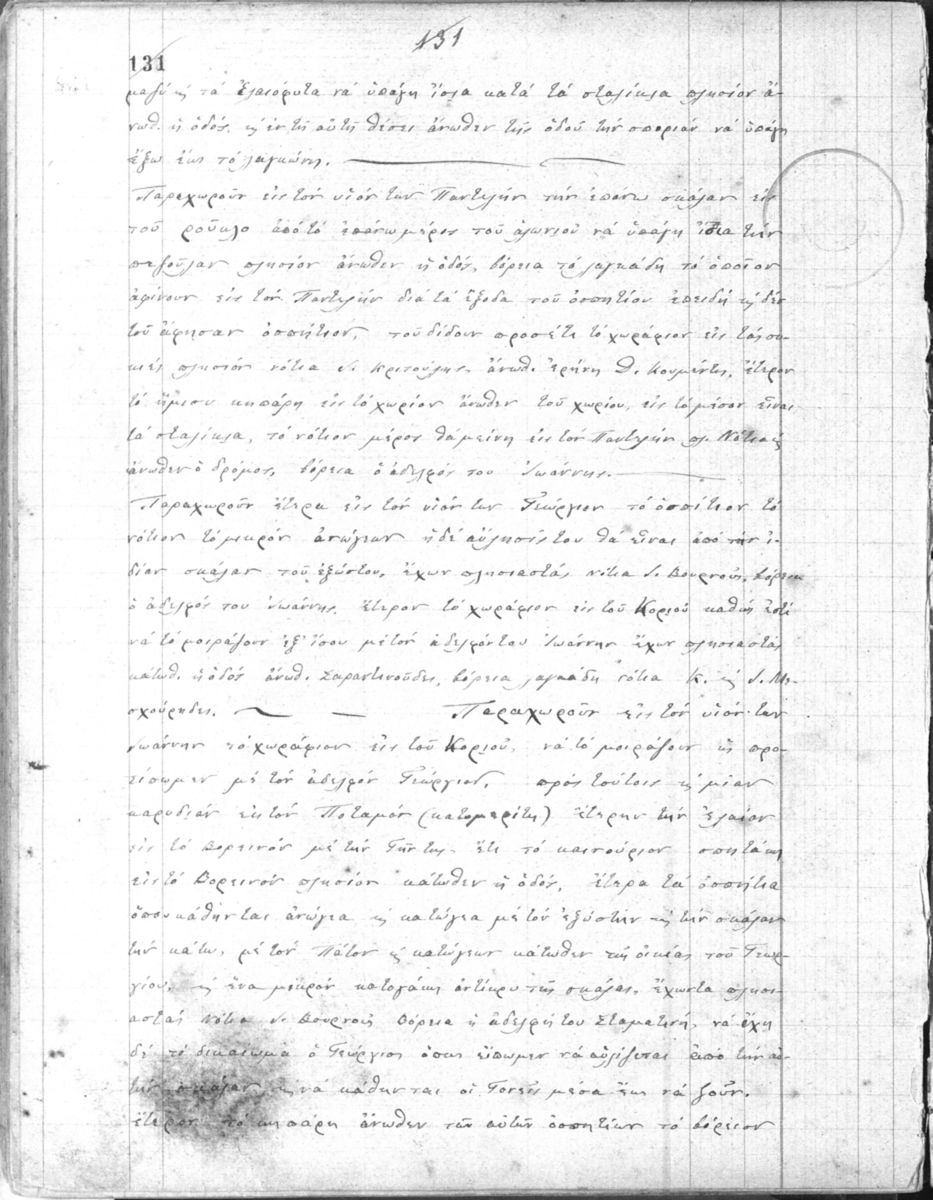 131
131
μαζύ κ τά ἐλαιόφυτα νά ὑπάγῃ ἴσια κατά τά σταλίκια πλησίον ἄ-
νωθ. ἡ ὁδός, κ ἐν τῇ αὐτῇ θέσει ἄνωθεν τῆς ὁδοῦ τήν σποριάν νά ὑπάγῃ
ἔξω ἕως τό λαγκώνι.
Παραχωροῦν εἰς τόν υἱόν των Παντελῆν τήν ἐπάνω σκάλαν εἰς
τοῦ ρούκλο ἀπό τό ἐπάνω μέρος τοῦ ἁλωνιοῦ νά ὑπάγῃ ἴσια τήν
πεζούλαν πλησίον ἄνωθεν ἡ ὁδός, βόρεια τό λαγκάδι τό ὁποῖον
ἀφίνουν εἰς τόν Παντελῆν διά τά ἔξοδα τοῦ ὁσπητίου ἐπειδή κ δέν
τοῦ ἄφησαν ὁσπήτιον, τοῦ δίδουν προσέτι τό χωράφιον εἰς τάς συ-
κιές πλησίον νότια Ν. Κριτούλης, ἄνωθ. Ἐρήνη Δ. Κουμέντη, ἕτερον
τό ἥμισυ κηπάρι εἰς τό χωρίον ἄνωθεν τοῦ χωρίου, εἰς τό μέσον εἶναι
τά σταλίκια, τό νότιον μέρος θά μείνῃ εἰς τόν Παντελῆν πλ. Νότια
ἄνωθεν ὁ δρόμος, βόρεια ὁ ἀδελφός του Ἰωάννης.
Παραχωροῦν ἕτερα εἰς τόν υἱόν των Γεώργιον τό ὁσπίτιον τό
νότιον τό μικρόν ἀνώγεων ἡ δέ αὔλησίς του θά εἶναι ἀπό τήν ἰ-
δίαν σκάλαν τοῦ ἐξώστου, ἔχων πλησιαστάς νότια Ν. Βουρνοῦς, βόρεια
ὁ ἀδελφός του Ἰωάννης, ἕτερον τό χωράφιον εἰς τοῦ Κοριοῦ καθώς ἐστί
νά τό μοιράζουν ἐξ ἴσου μέ τόν ἀδελφόν του Ἰωάννην ἔχων πλησιαστάς
κάτωθ. ἡ ὁδός ἄνωθ. Σαραντινούδες, βόρεια λαγκάδι νότια Κ. κ Ν. Μο-
σχούρηδες. Παραχωροῦν εἰς τόν υἱόν των
Ἰωάννην τό χωράφιον εἰς τοῦ Κοριοῦ, νά τό μοιράζουν ὡς προ-
είπωμεν μέ τόν ἀδελφόν Γεώργιον, πρός τούτοις κ μίαν
καρυδιάν εἰς τόν Ποταμόν (κατομερίτη) ἕτερην τήν ἐλαίαν
εἰς τό Βορεινόν μέ τήν Γῆν της, ἔτι τό καινούριον σπητάκι
εἰς τό Βορεινόν πλησίον κάτωθεν ἡ ὁδός, ἕτερα τά ὁσπήτια
ὅπου κάθηνται ἀνώγεια κ κατώγεια μέ τόν ἐξώστην κ τήν σκάλαν
τήν κάτω, μέ τόν Πάτον κ κατώγεων κάτωθεν τῆς οἰκίας τοῦ Γεωρ-
γίου, κ ἕνα μικρόν κατογάκι ἀντίκρυ τῆς σκάλας, ἔχωντα πλησι-
αστάς Νότια Ν. Βουρνοῦς Βόρεια ἡ ἀδελφή του Σταματική, νά ἔχῃ
δέ τό δικαίωμα ὁ Γεώργιος ὅπως εἴπωμεν νά αὐλίζεται ἀπό τήν αὐ-
τήν σκάλαν κ νά κάθηνται οἱ Γονεῖς μέσα ἕως νά ζοῦν.
ἕτερον τό κηπάρι ἄνωθεν τῶν αὐτῶν ὁσπητίων τό βόρειον